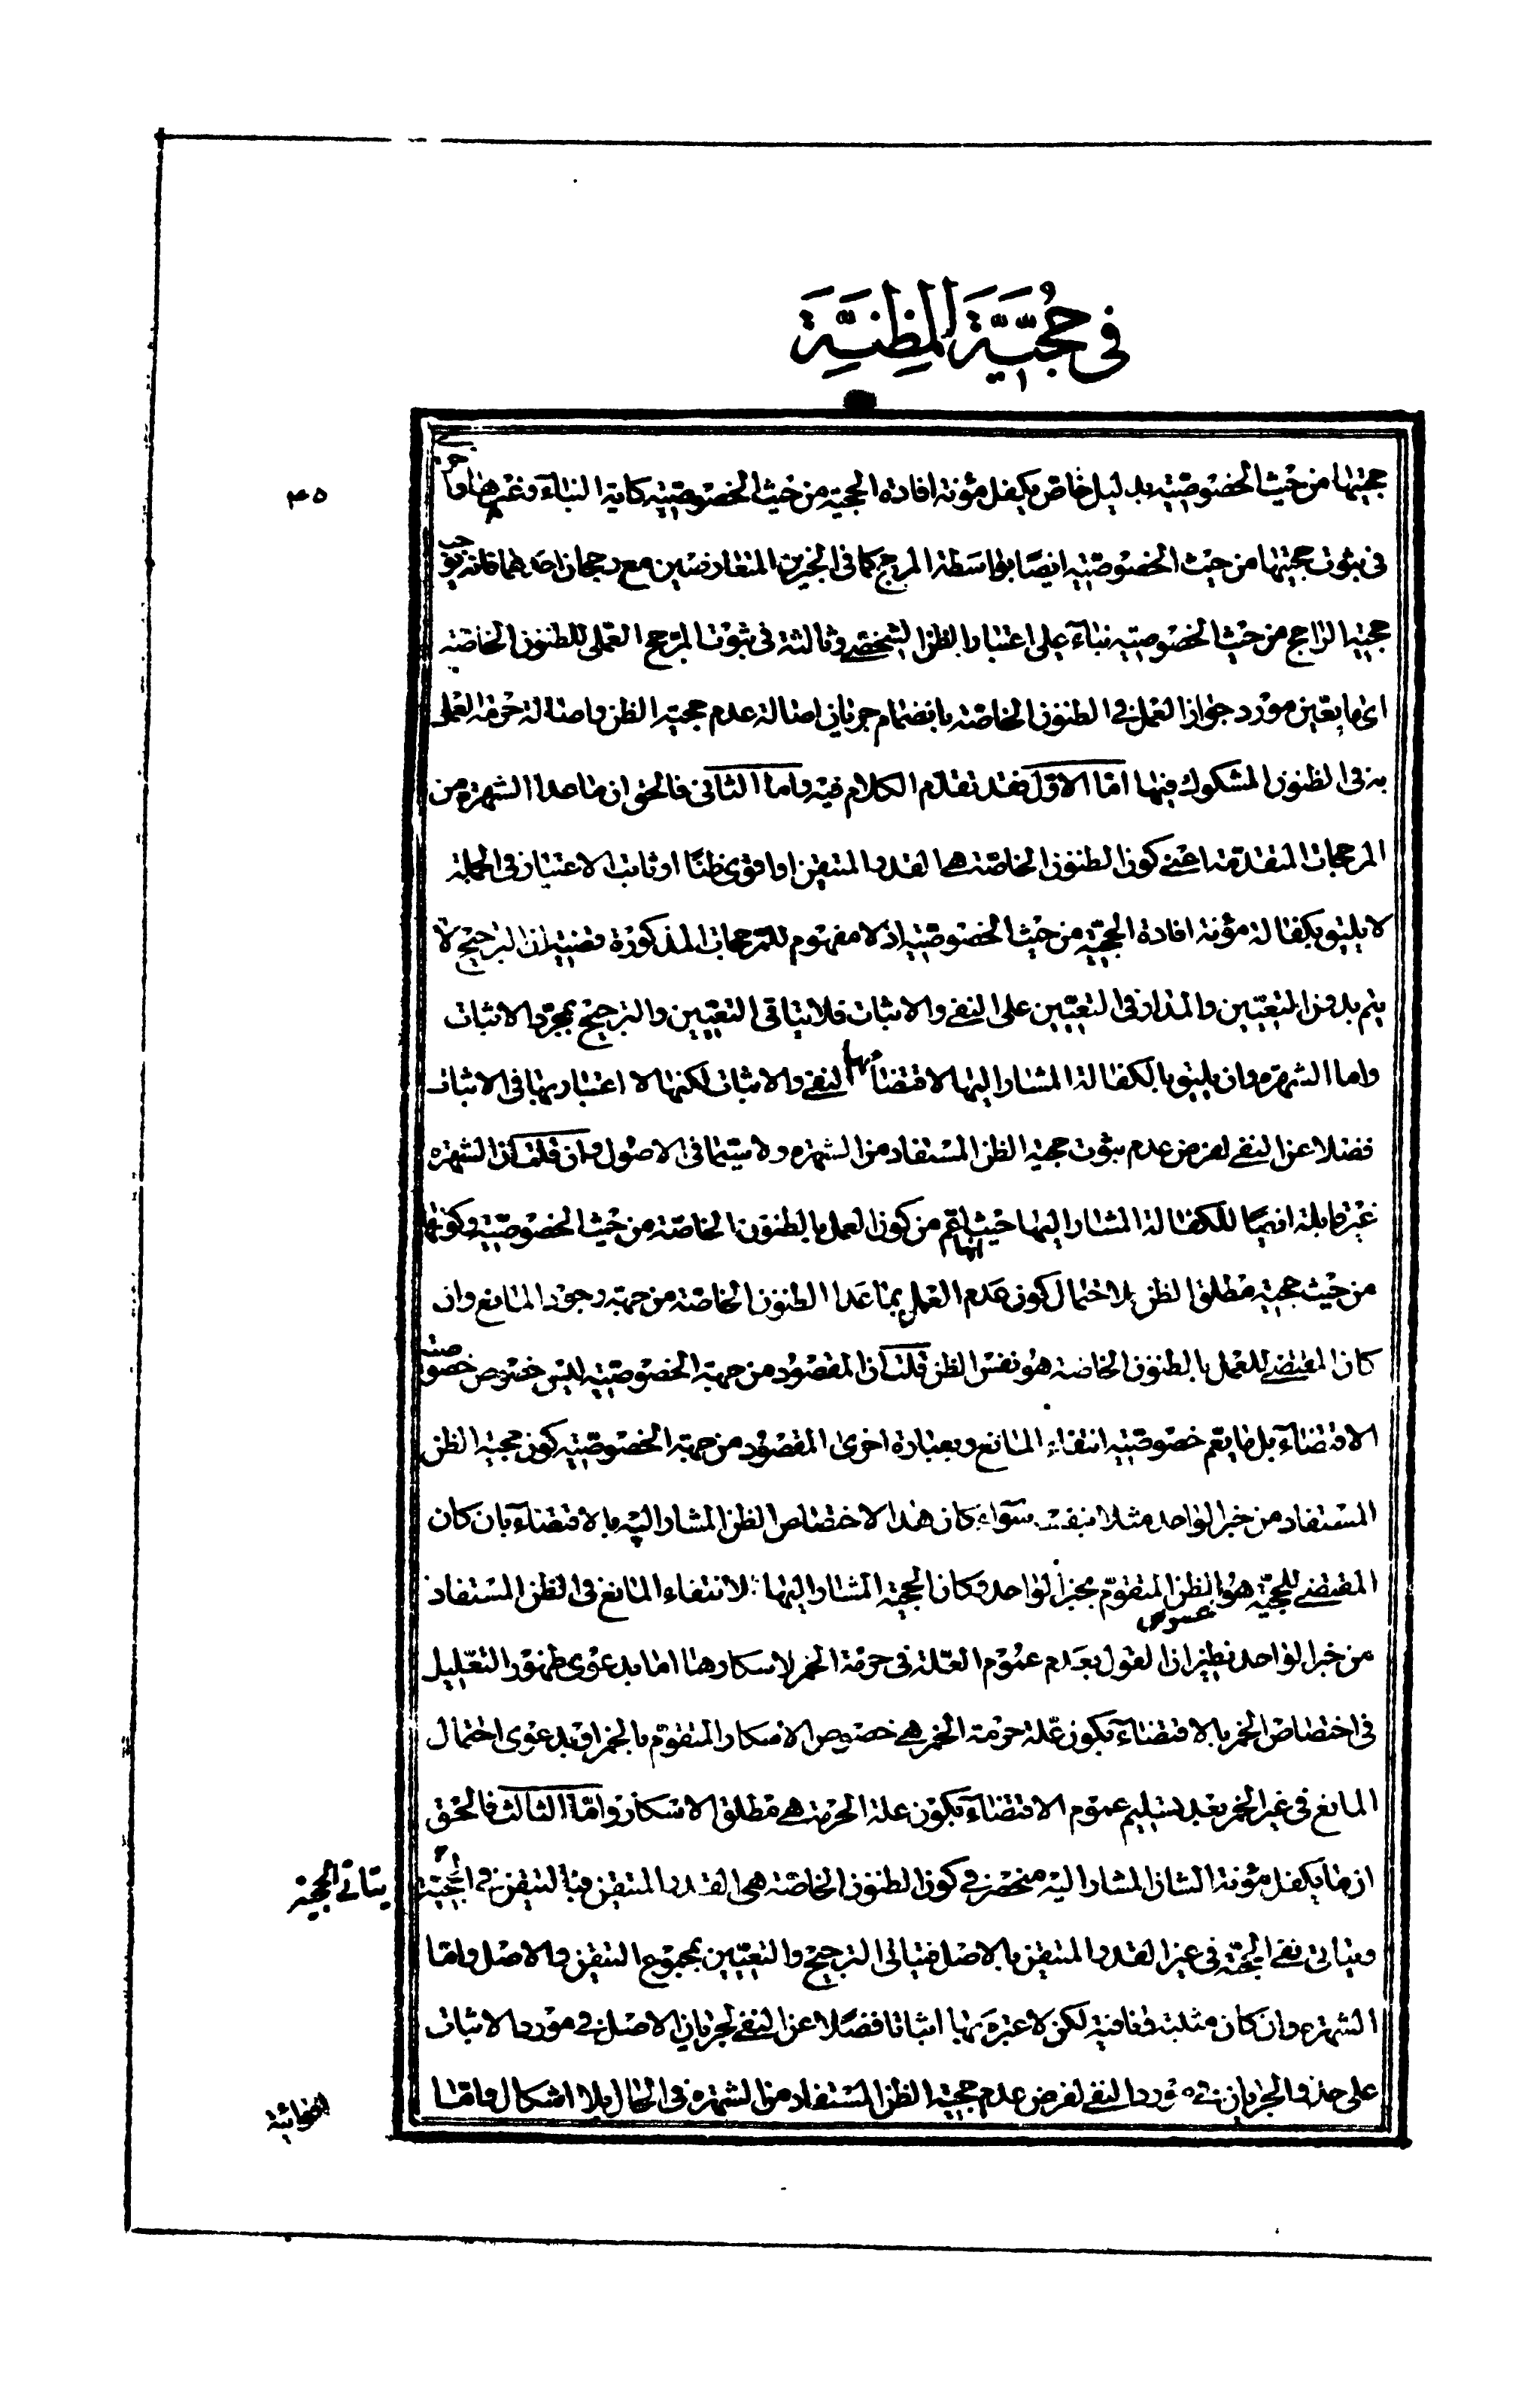 في حُجِّيَّةَ المظِنِيَّةَ
٤٥
حجيتها من حيث الخصوصيّة بدليل خاص يكفل مؤنة افادة الحجية من حيث الخصوصيّة كاية النباء وغيرها و
فى ثبوت حجيتها من حيث الخصوصيّة ايضًا بواسطة المرجح كما فى الخبرين المتعارضين مع رجحان احدهما فانه
حجية الراجح من حيث الخصوصيّة بناء على اعتبار الظن الشخصى وثالثة فى ثبوت المرجح العملى للظنون الخاصّة
اى ما يعين مورد جواز العمل فى الظنون الخاصّة بانضمام جريان اصالة عدم حجية الظن واصالة حرمة العمل
به فى الظنون المشكوك فيها امّا الاوّل فقد تقدّم الكلام فيه واما الثانى فالحق ان ما عدا الشهرة من
المرجحات المتقدمة اعنى كون الظنون الخاصّة هى القدر المتيقن او اقوى ظنًا او ثابت الاعتبار فى الجملة
لا يليق بكفالة مؤنة افادة الحجيّة من حيث الخصوصيّة اذ لا مفهوم للمرجحات المذكورة وقضية ان الترجيح لا
يتم بدون التعيّين والمدار فى التعيّين على النفى والاثبات فلا يتاتى التعيّين والترجيح بمجرّد الاثبات
واما الشهرة وان يليق بالكفالة المشار اليها لاقتضائها النفى والاثبات لكنها لا اعتبار بها فى الاثبات
فضلا عن النفى لفرض عدم ثبوت حجية الظن المستفاد من الشهرة ولا سيّما فى الاصول وان قلت ان الشهرة
غير قابلة ايضًا للكفالة المشار اليها حيث انها اعم من كون العمل بالظنون الخاصّة من حيث الخصوصيّة وكونها
من حيث حجية مطلق الظن بلا احتمال كون عدم العمل بما عدا الظنون الخاصّة من جهة وجود المانع وان
كان المقتضى للعمل بالظنون الخاصة هو نفس الظن قلت ان المقصود من جهة الخصوصيّة ليس خصوص خصوصية
الاقتضاء بل ما يعم خصوصيّة انتفاء المانع وبعبارة اخرى المقصود من جهة الخصوصيّة كون حجية الظن
المستفاد من خبر الواحد مثلا بنفسه سواء كان هذا الاختصاص الظن المشار اليه بالاقتضاء بان كان
المقتضى للحجيّة هو الظن المتقوّم بخبر الواحد وكان الحجية المشار اليها لانتفاء المانع فى الظن المستفاد
من خبر الواحد نظير ان القول بعدم عموم العلّة فى حرمة الخمر لاسكارها اما بدعوى ظهور التعليل
فى اختصاص الخمر بالاقتضاء بكون علّة حرمة الخمر هى خصوص الاسكار المتقوم بالخمر او بدعوى احتمال
المانع فى غير الخمر بعد تسليم عموم الاقتضاء بكون علة الحرمة هى مطلق الاسكار وامّا الثالث فالحق
ان ما يكفل مؤنة الشان المشار اليه منحصر فى كون الظنون الخاصّة هى القدر المتيقن فبا لتيقن فى الحجيّة
يتاتى الحجية
ويتاتى نفى الحجيّة فى غير القدر المتيقن بالاصل فيتاتى الترجيح والتعيّين بمجموع التيقن والاصل وامّا
الشهرة وان كان مثبتة ونافية لكن لا عبرة بها اثباتا فضلًا عن النفى لجريان الاصل فى مورد الاثبات
على حذو الجريان فى مورد النفى لفرض عدم حجية الظن المستفاد من الشهرة فى الحال بلا اشكال وامّا